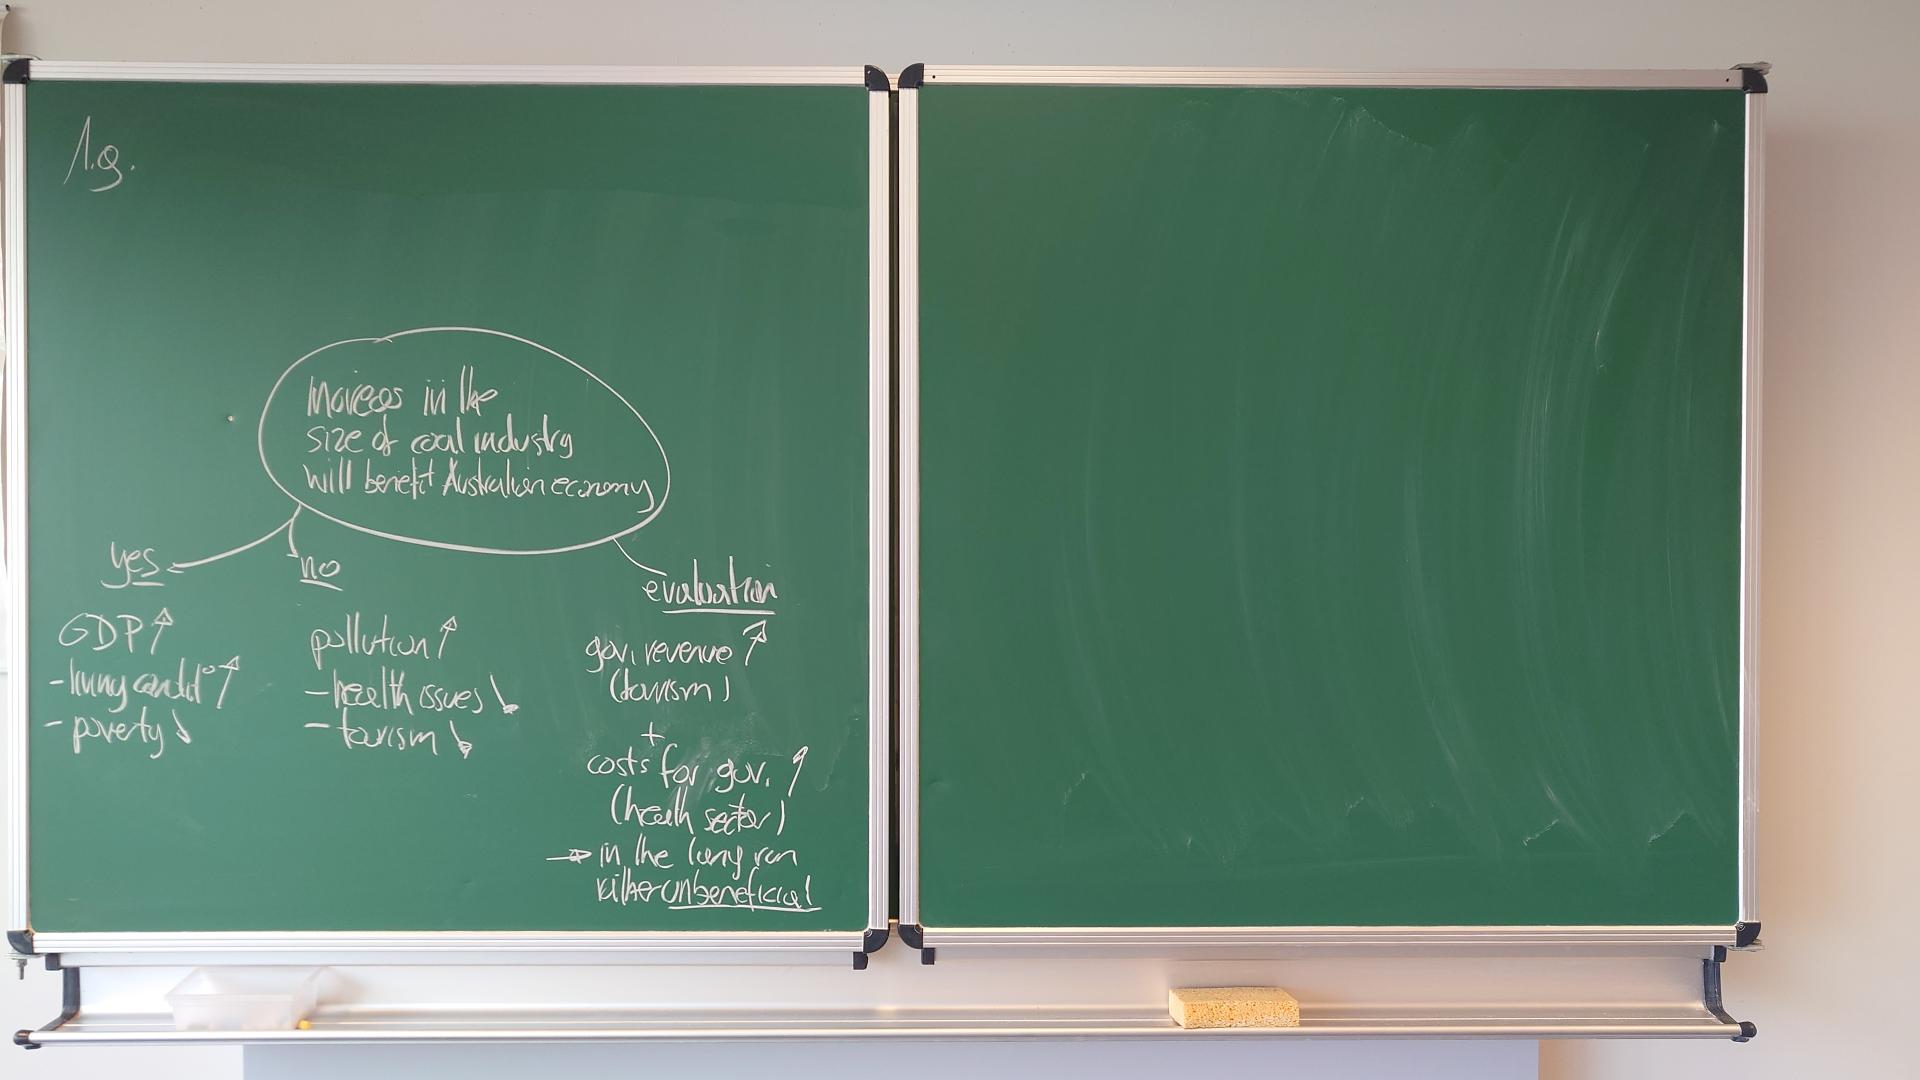 1.9.
increas in the
size of coal industry
will benefit Australian economy
yes
GDP ↑
- living condit° ↑
- poverty ↓
no
pollution ↑
- health issues ↓
- tourism ↓
evaluation
gov. revenue ↑
(tourism)
+
costs for gov. ↑
(health sector)
→ in the long run
rather unbeneficial